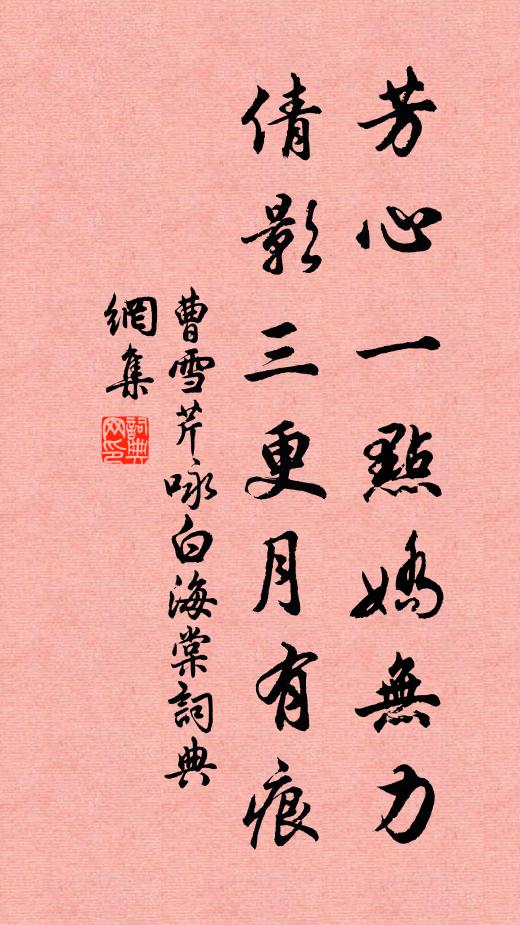 芳心一點嬌無力
倩影三更月有痕
曹雪芹咏白海棠詞典
網集
詞典
网印